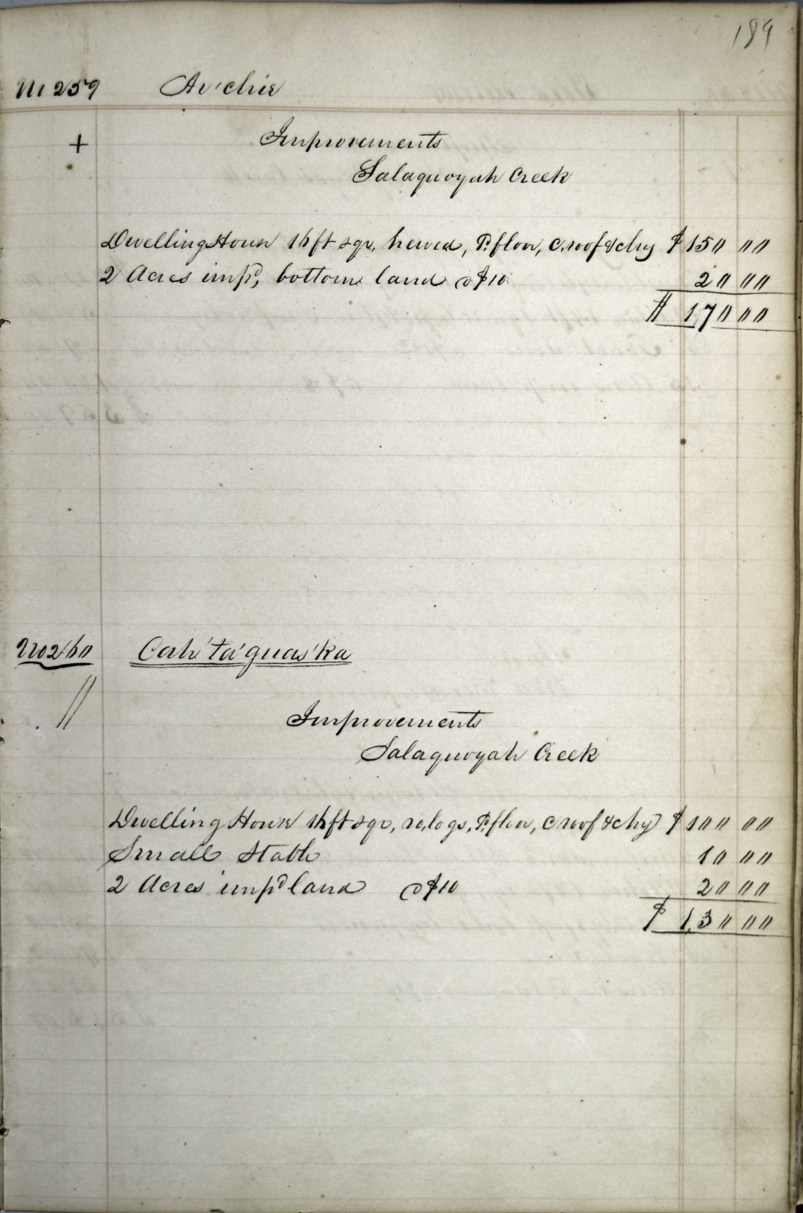 189
No 259 Archie
+ Improvements
Salaquoyah Creek
Dwelling House 16 ft sqr, hewed, P. floor, C. roof & chy $ 15 " " "
2 Acres imp'd, bottom land @ $10 2 " " "
$ 17 " " "
No 260 Cah'ta'quas'ka
// Improvements
Salaquoyah Creek
Dwelling House 16 ft sqr, ro, logs, P. floor, C roof & chy $ 1 " " " "
Small Stable 1 " " "
2 Acres imp'd land @ $10 2 " " "
$ 1,3 " " "